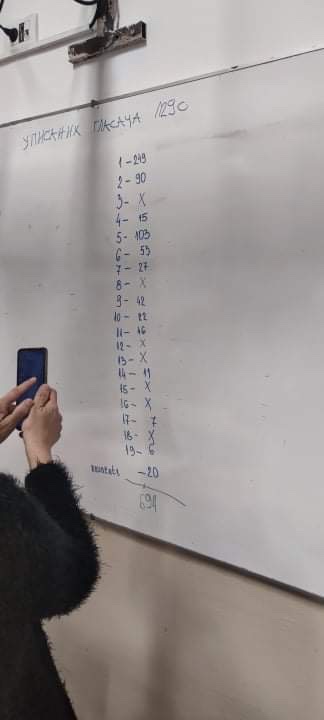 УПИСАНИХ ГЛАСАЧА 1290
1 - 249
2 - 90
3 - X
4 - 15
5 - 103
6 - 53
7 - 27
8 - X
9 - 42
10 - 22
11 - 46
12 - X
13 - X
14 - 11
15 - X
16 - X
17 - 7
18 - X
19 - 6
- 20
691